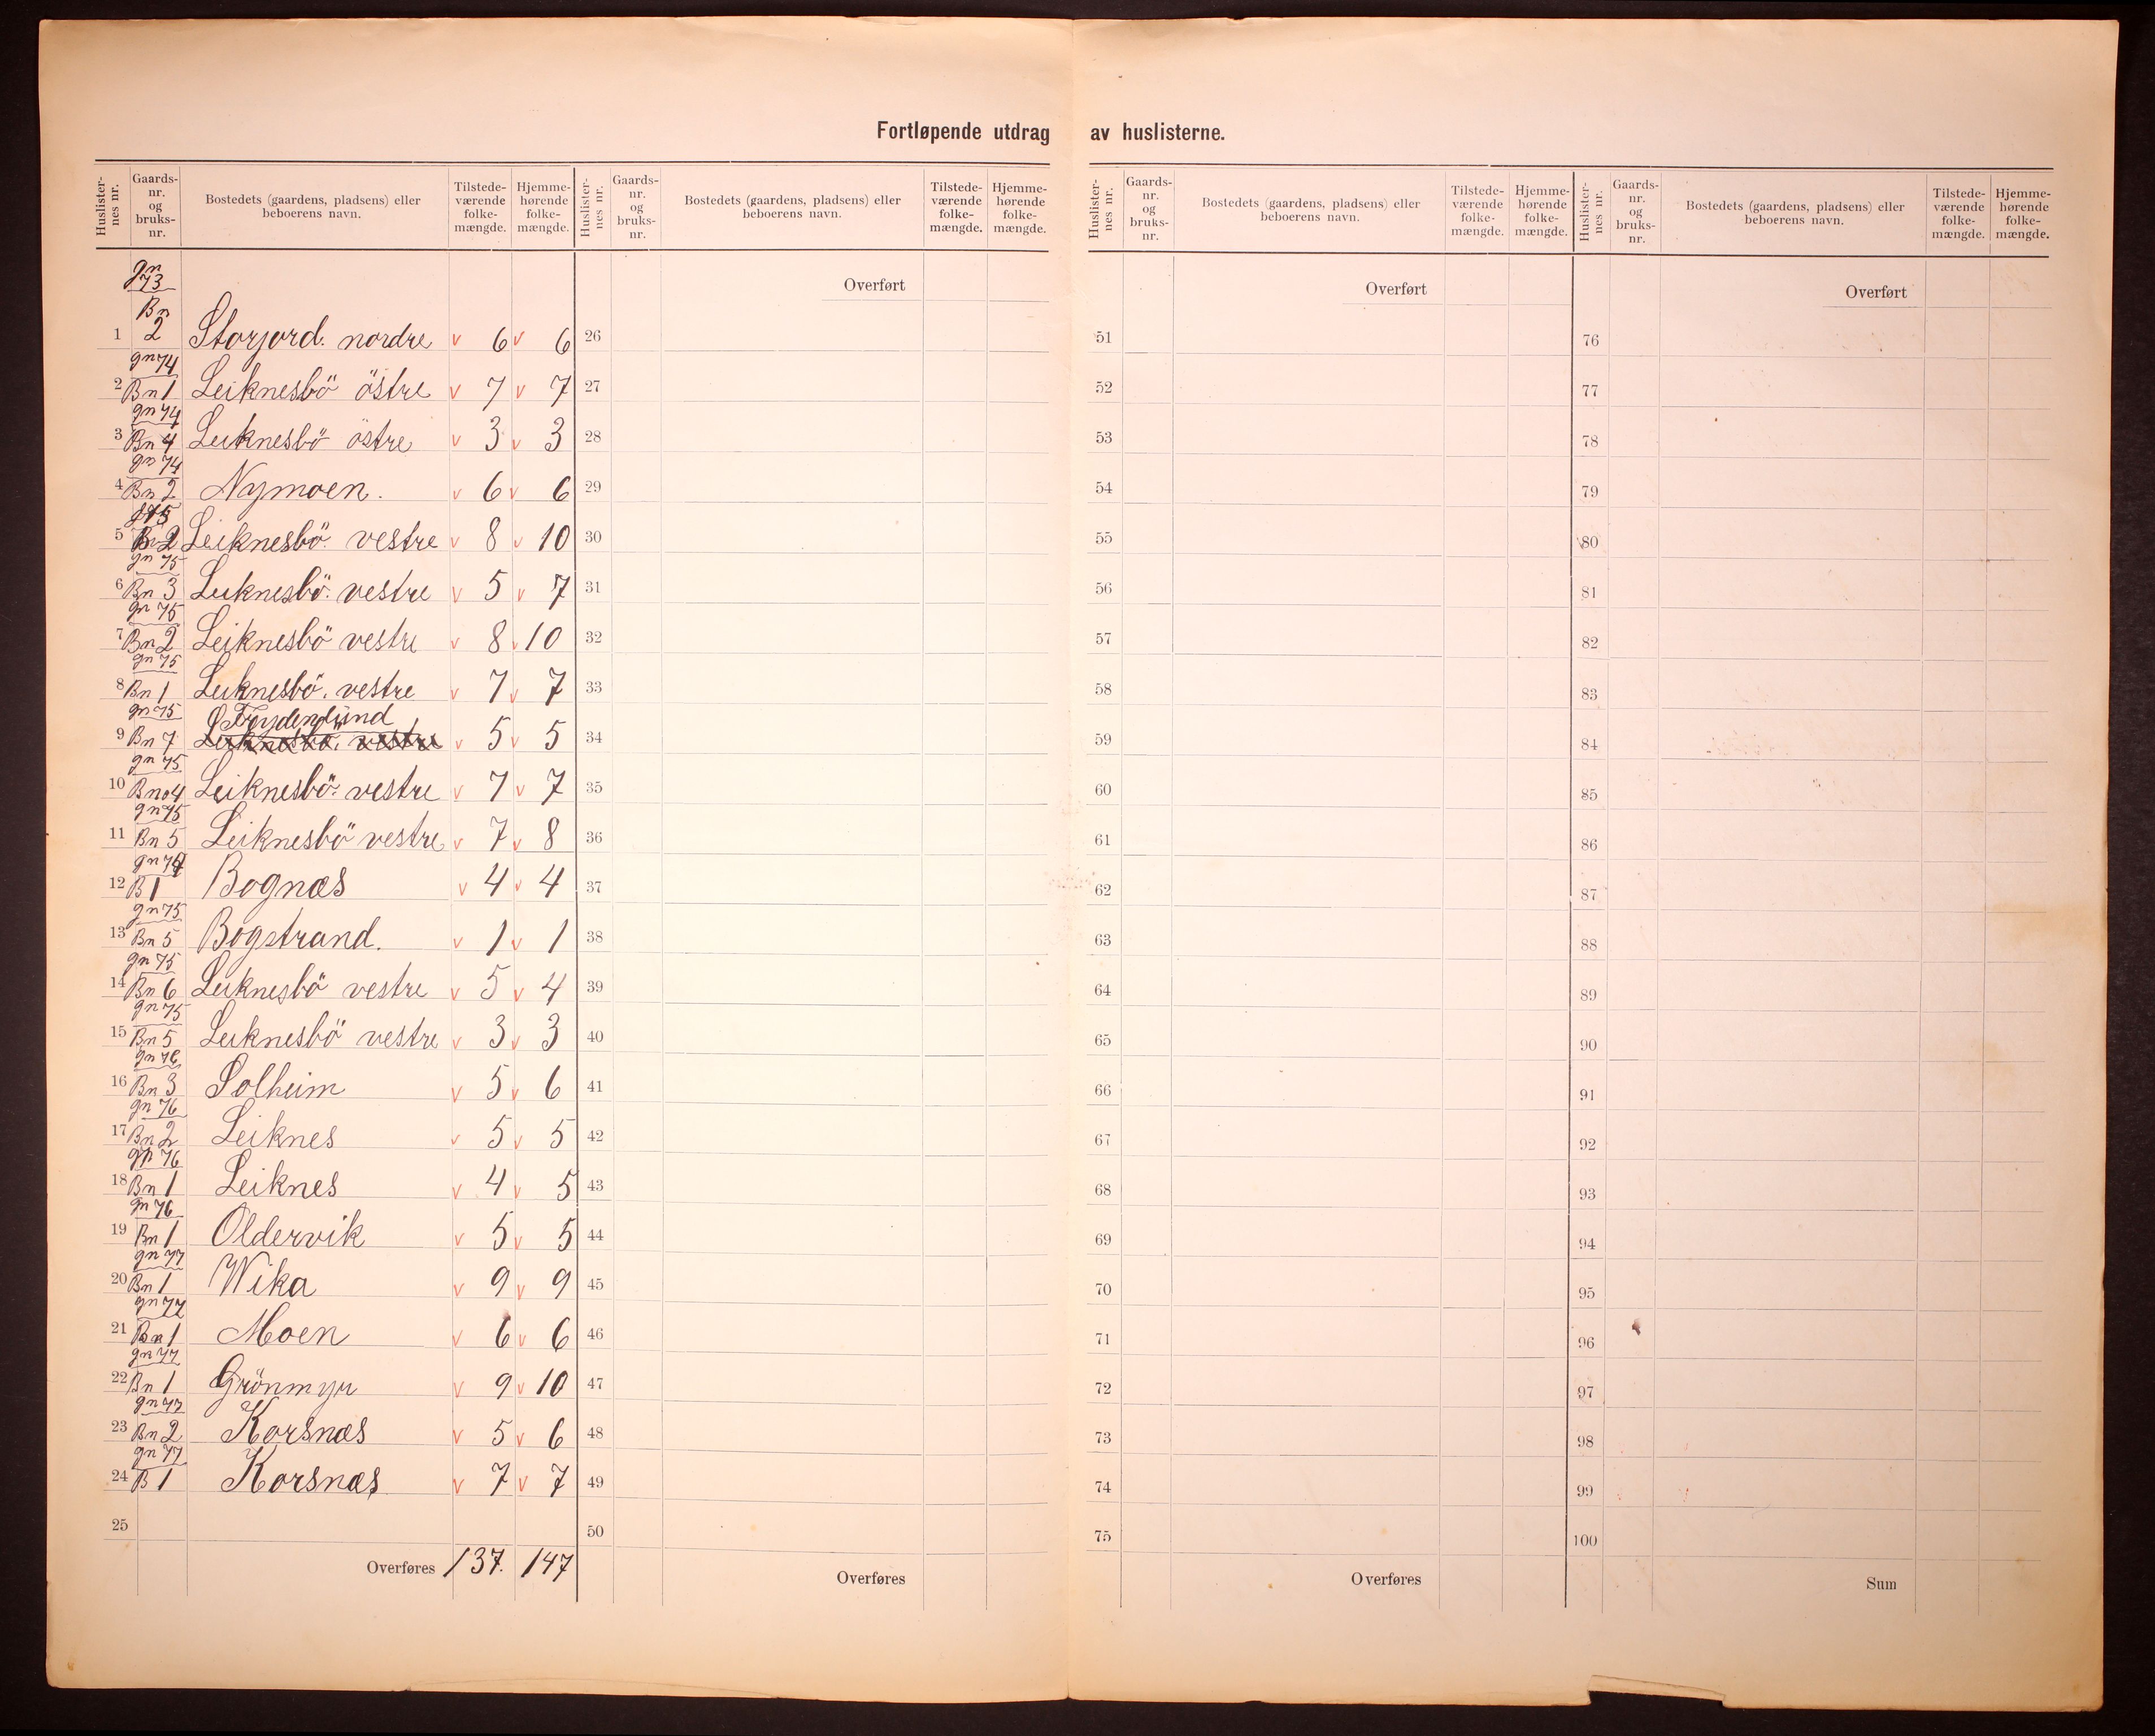 Fortløpende utdrag av huslisterne.
Huslister-nes nr. Gaards-nr. og bruks-nr. Bostedets (gaardens, pladsens) eller beboerens navn. Tilstede-værende folke-mængde. Hjemme-hørende folke-mængde.
gn 73
1 Bn 2 Storjord. nordre v 6 v 6
gn 74
2 Bn 1 Leiknesbö östre v 7 v 7
gn 74
3 Bn 4 Leiknesbö östre v 3 v 3
gn 74
4 Bn 2 Nymoen. v 6 v 6
g 75
5 Bn 2 Leiknesbö. vestre v 8 v 10
gn 75
6 Bn 3 Leiknesbö. vestre v 5 v 7
gn 75
7 Bn 2 Leiknesbö vestre v 8 v 10
gn 75
8 Bn 1 Leiknesbö. vestre v 7 v 7
gn 75 Frydenlund
9 Bn 7 Leiknesbö. vestre v 5 v 5
gn 75
10 Bno 4 Leiknesbö. vestre v 7 v 7
gn 75
11 Bn 5 Leiknesbö vestre v 7 v 8
gn 74
12 B 1 Bognæs v 4 v 4
gn 75
13 Bn 5 Bogstrand. v 1 v 1
gn 75
14 Bn 6 Leiknesbö vestre v 5 v 4
gn 75
15 Bn 5 Leiknesbö vestre v 3 v 3
gn 76
16 Bn 3 Solheim v 5 v 6
gn 76
17 Bn 2 Leiknes v 5 v 5
gn 76
18 Bn 1 Leiknes v 4 v 5
gn 76
19 Bn 1 Oldervik v 5 v 5
gn 77
20 Bn 1 Wika v 9 v 9
gn 77
21 Bn 1 Moen v 6 v 6
gn 77
22 Bn 1 Grönmyr v 9 v 10
gn 77
23 Bn 2 Korsnæs v 5 v 6
gn 77
24 B 1 Korsnæs v 7 v 7
25
Overføres 137. 147
Huslister-nes nr. Gaards-nr. og bruks-nr. Bostedets (gaardens, pladsens) eller beboerens navn. Tilstede-værende folke-mængde. Hjemme-hørende folke-mængde.
Overført
26
27
28
29
30
31
32
33
34
35
36
37
38
39
40
41
42
43
44
45
46
47
48
49
50
Overføres
Huslister-nes nr. Gaards-nr. og bruks-nr. Bostedets (gaardens, pladsens) eller beboerens navn. Tilstede-værende folke-mængde. Hjemme-hørende folke-mængde.
Overført
51
52
53
54
55
56
57
58
59
60
61
62
63
64
65
66
67
68
69
70
71
72
73
74
75
Overføres
Huslister-nes nr. Gaards-nr. og bruks-nr. Bostedets (gaardens, pladsens) eller beboerens navn. Tilstede-værende folke-mængde. Hjemme-hørende folke-mængde.
Overført
76
77
78
79
80
81
82
83
84
85
86
87
88
89
90
91
92
93
94
95
96
97
98
99
100
Sum